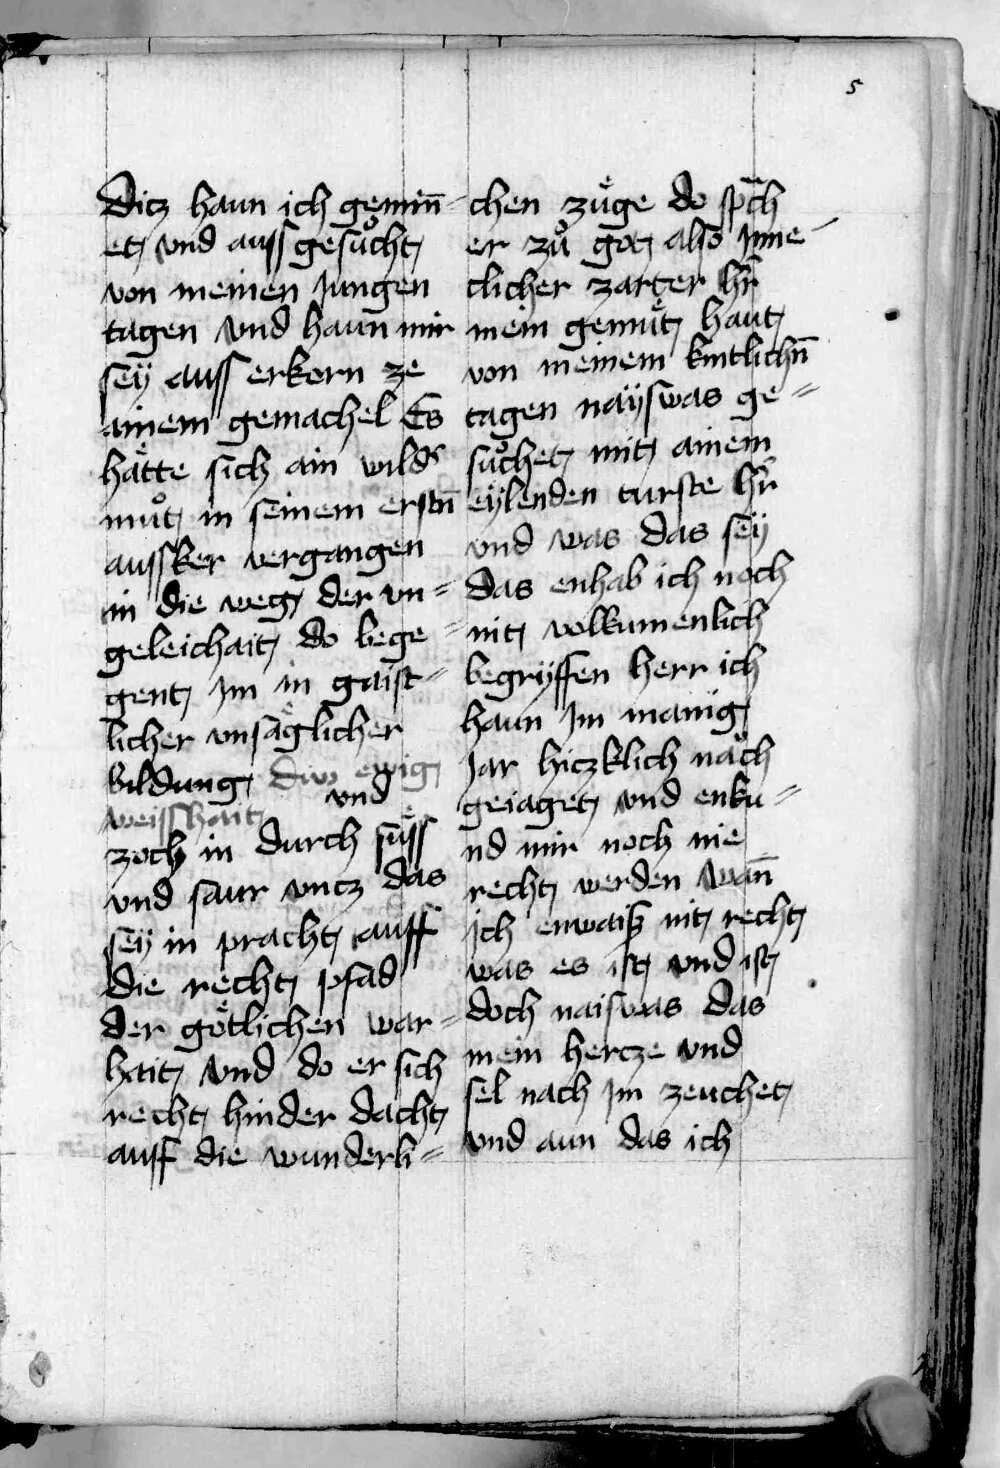 5
Dicz haun ich geminn̄-
et vnd auss gesuͦcht
von meinen Jungen
tagen vnd haun mir
seÿ auss erkorn ze
ainem gemachel Es
haͤtte sich ain wilds
muͦt in seinem erstn̄
aussker vergangen
in die weg der vn-
geleichait do bege-
gent Jm in gaist-
licher vnsaͤglicher
bildung diw ewig
weisshait vnd
zoch in durch suͤss
vnd saur vncz das
seÿ in pracht auff
die recht pfad
der goͤtlichen war-
hait vnd do er sich
recht hinder dacht
auff die wunderli-
chen zuͤge do sp̄ch
er zuͦ got also Jnne-
clicher zarter hr̄
mein gemuͤt haut
von meinem kintlichn̄
tagen naÿswas ge-
suͦchet mit ainem
eÿlenden turste hr̄
vnd was das seÿ
das enhab ich noch
nit volkumenlich
begrÿffen herr ich
haun Jm manig
Jar hiczklich naͦch
geiaget vnd enku-
nd mir noch nie
recht werden wan̄
ich enwaiß nit recht
was es ist vnd ist
doch naiswas das
mein hercze vnd
sel nach Jm zeuchet
vnd aun das ich